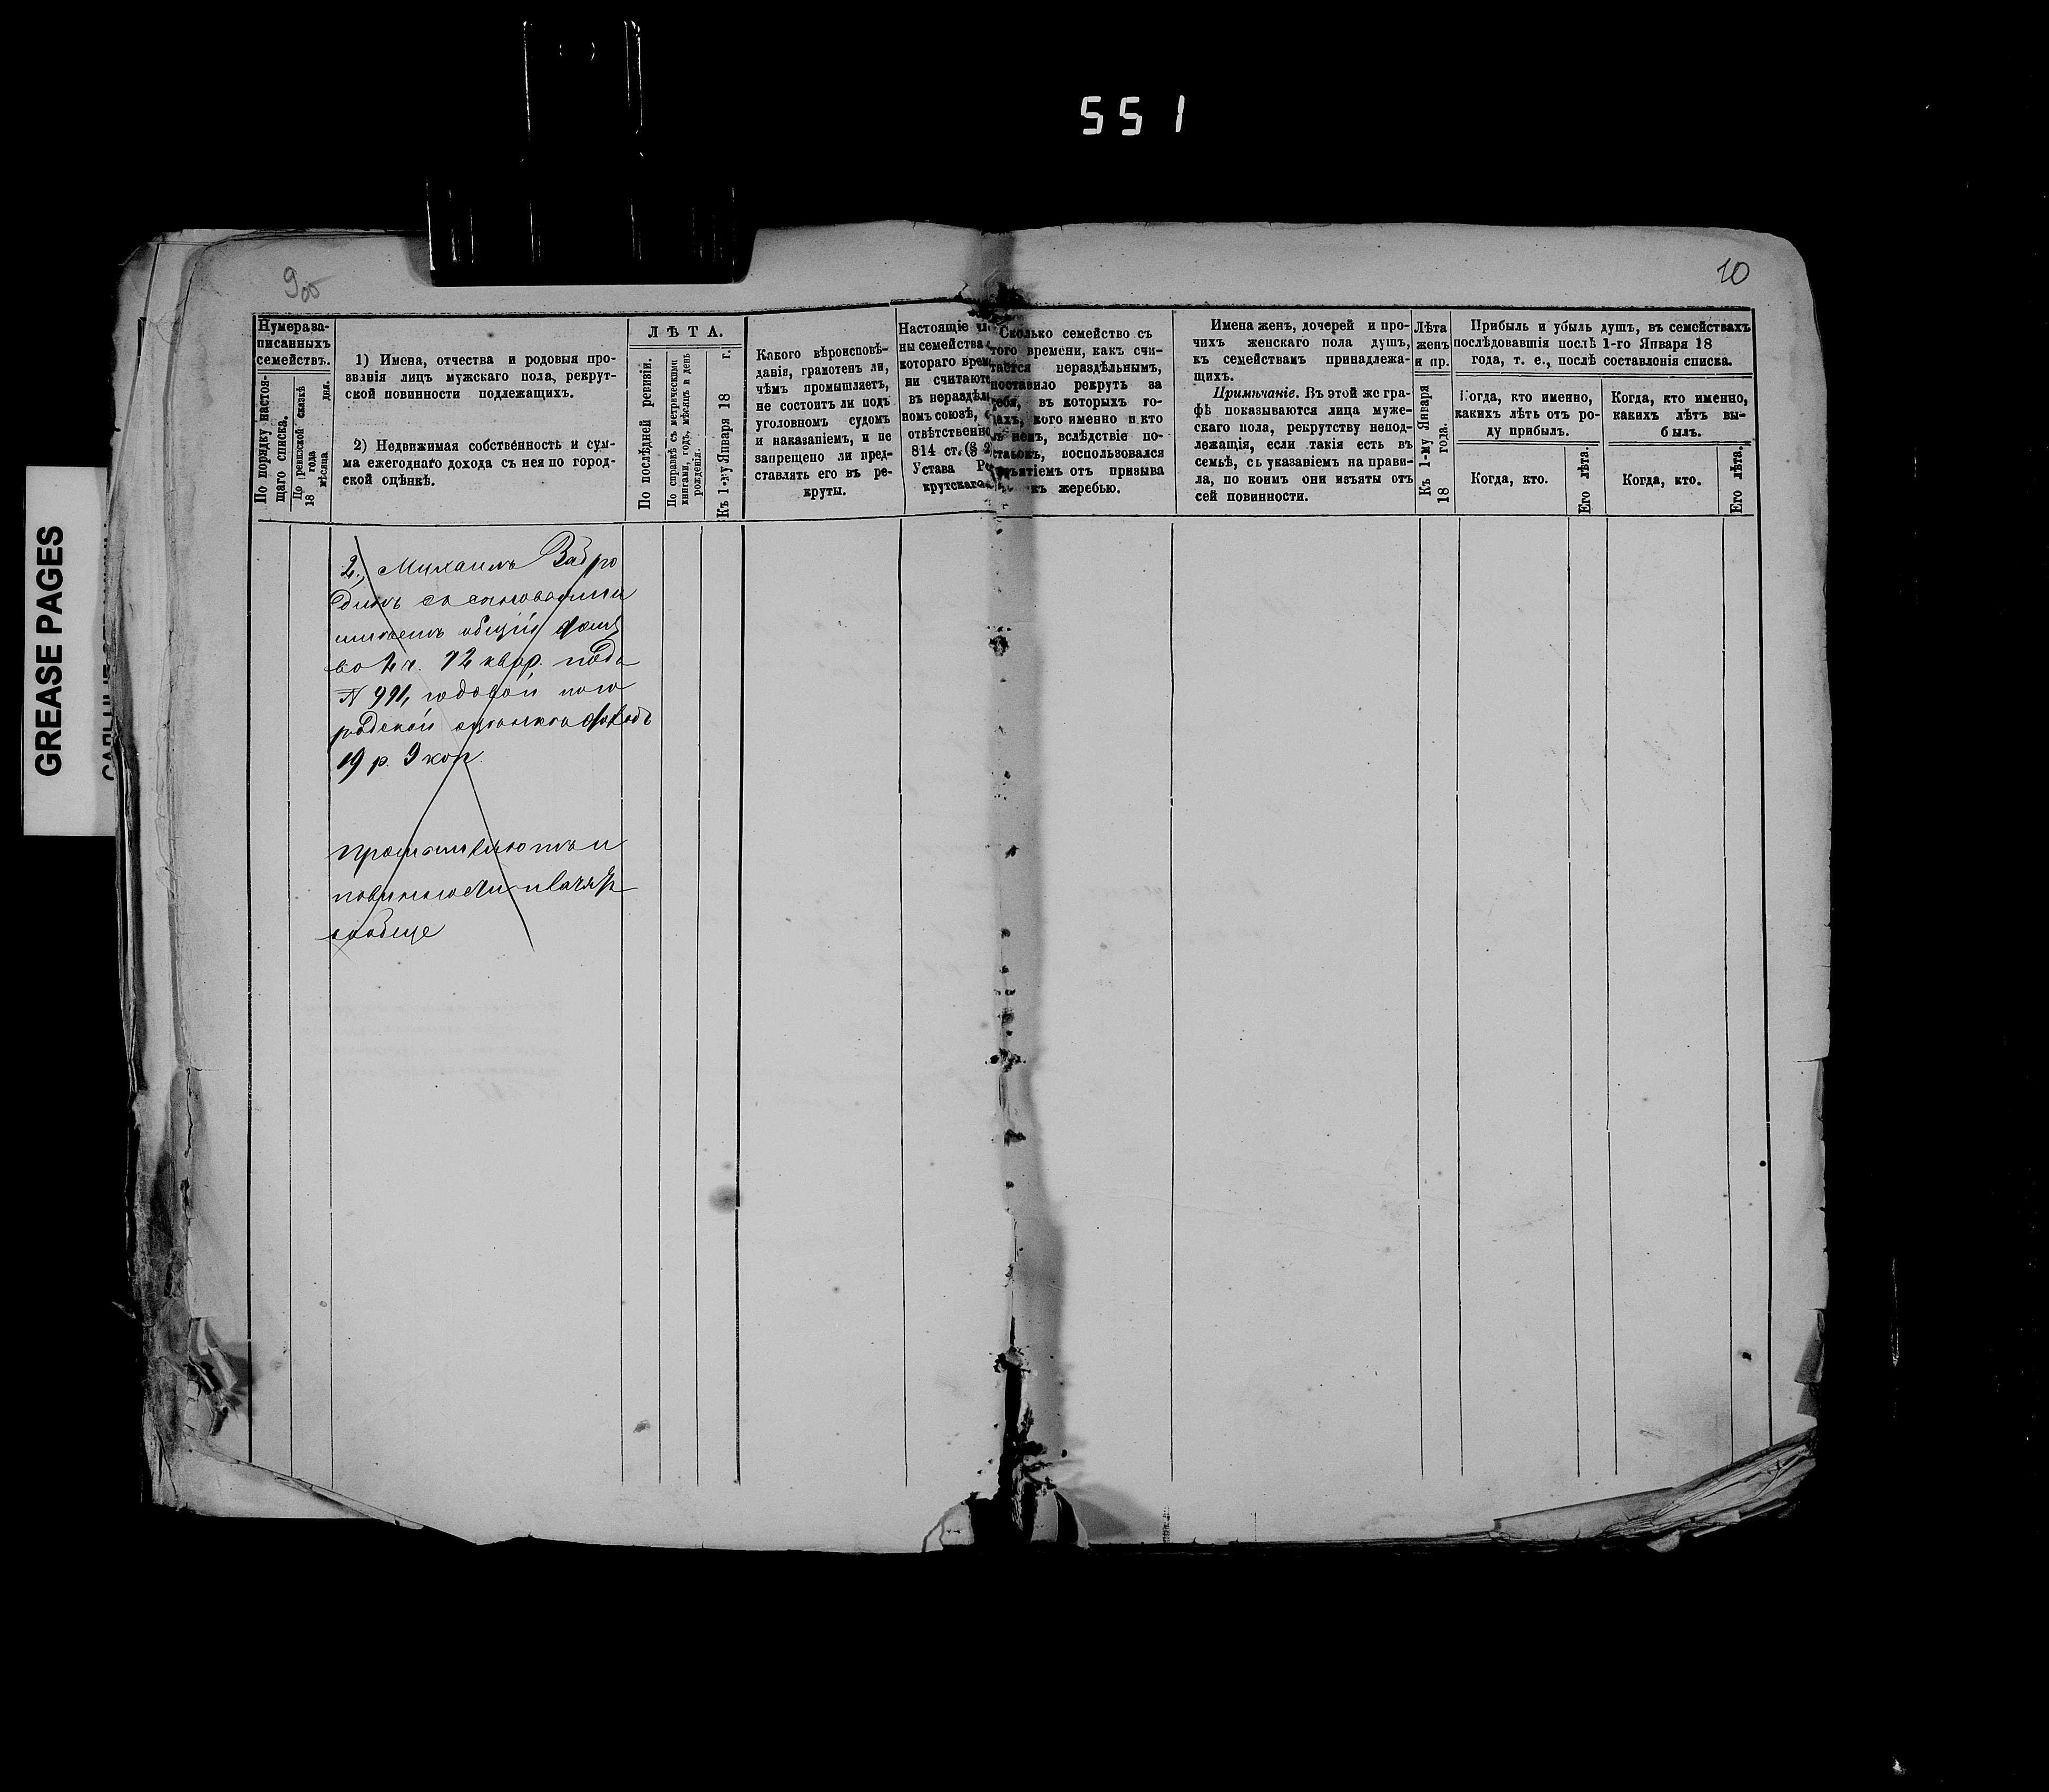 551
9об
10
GREASE PAGES
Нумера за-
писанныхъ
семействъ.
По порядку настоя-
щаго списка.
По ревизской сказкѣ
18 года
мѣсяца дня.
1) Имена, отчества и родовыя про-
званія лицъ мужскаго пола, рекрут-
ской повинности подлежащихъ.
2) Недвижимая собственность и сум-
ма ежегоднаго дохода съ нея по город-
ской оцѣнкѣ.
ЛѢТА.
По послѣдней ревизіи.
По справкѣ съ метрическими
книгами, годъ, мѣсяцъ и день
рожденія.
Къ 1-му Января 18 г.
Какого вѣроисповѣ-
данія, грамотенъ ли,
чѣмъ промышляетъ,
не состоитъ ли подъ
уголовномъ судомъ
и наказаніемъ, и не
запрещено ли пред-
ставлять его въ ре-
круты.
Настоящіе
ны семейства
котораго
ни считают
въ
номъ союзѣ,
отвѣтственно
814 ст. (§ 2
Устава
крутскаго
Сколько семейство съ
того времени, какъ счи-
тается нераздѣльнымъ,
поставило рекрутъ за
себя, въ которыхъ го-
дахъ, кого именно и кто
немъ, вслѣдствіе по-
воспользовался
изъятіемъ отъ призыва
къ жеребью.
Имена женъ, дочерей и про-
чихъ женскаго пола душъ,
къ семействамъ принадлежа-
щихъ.
Примѣчаніе. Въ этой же гра-
фѣ показываются лица муже-
скаго пола, рекрутству непод-
лежащія, если такія есть въ
семьѣ, съ указаніемъ на прави-
ла, по коимъ они изъяты отъ
сей повинности.
Лѣта
женъ
и пр.
Къ 1-му Января
18 года.
Прибыль и убыль душъ, въ семействахъ
послѣдовавшія послѣ 1-го Января 18
года, т. е., послѣ составлонія списка.
Когда, кто именно,
какихъ лѣтъ отъ ро-
ду прибылъ.
Когда, кто.
Его лѣта.
Когда, кто именно,
какихъ лѣтъ вы-
былъ.
Когда, кто.
Его лѣта.
2., Михаилъ
съ сыновьями
имѣетъ общій домъ
во 2 ч. 12 квар. подъ
N 991, годовой по го
родской оцѣнкѣ доходъ
19 р. 9 коп.
Промышляютъ и
повинности
сообще